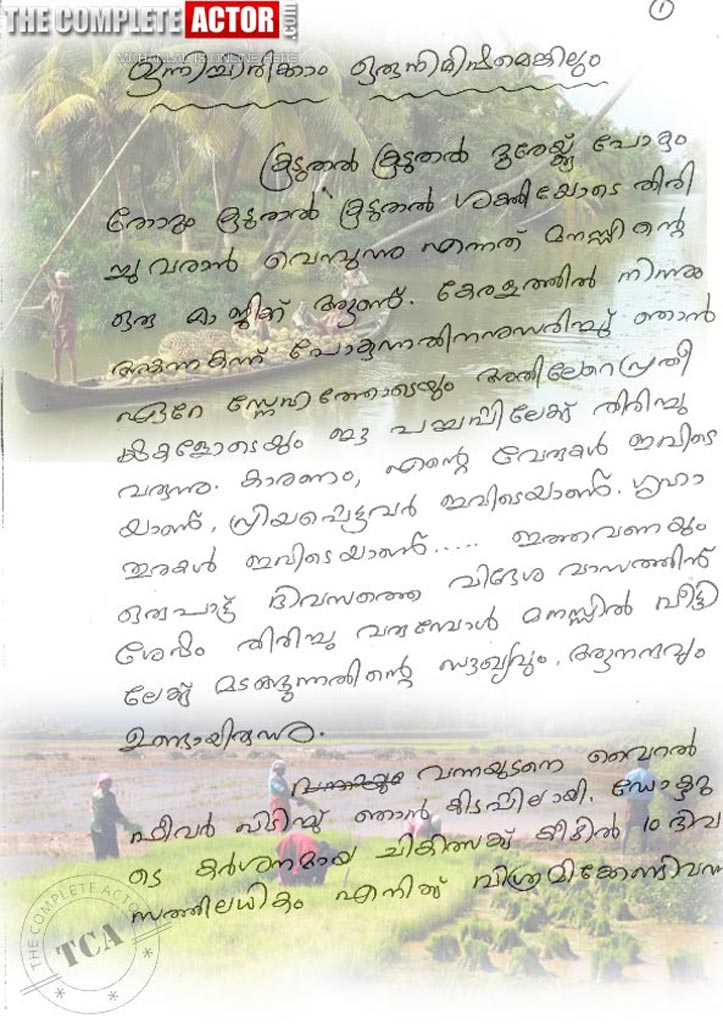 THE COMPLETE ACTOR.com
MOHANLAL IS ONLINE HERE
1
ഇന്നിച്ചിരിക്കാം ഒരുനിമിഷമെങ്കിലും
കൂടുതൽ കൂടുതൽ ദൂരേയ്ക്ക് പോകും
തോറും കൂടുതൽ കൂടുതൽ ശക്തിയോടെ തിരി
ച്ചുവരാൻ വെമ്പുന്നു എന്നത് മനസ്സിന്റെ
ഒരു മാജിക് ആണ്. കേരളത്തിൽ നിന്നും
അകന്നകന്ന് പോകുന്നതിനനുസരിച്ച് ഞാൻ
ഏറെ സ്നേഹത്തോടെയും അതിലേറെ പ്രതീ
ക്ഷകളോടെയും ഈ പച്ചപ്പിലേക്ക് തിരിച്ചു
വരുന്നു. കാരണം, എന്റെ വേരുകൾ ഇവിടെ
യാണ്, പ്രിയപ്പെട്ടവർ ഇവിടെയാണ്. ഗൃഹാ
തുരകൾ ഇവിടെയാണ്..... ഇത്തവണയും
ഒരുപാട് ദിവസത്തെ വിദേശ വാസത്തിന്
ശേഷം തിരിച്ചു വരുമ്പോൾ മനസ്സിൽ വീട്ടി
ലേക്ക് മടങ്ങുന്നതിന്റെ സൗഖ്യവും, ആനന്ദവും
ഉണ്ടായിരുന്നു.
വന്നയുടനെ വൈറൽ
ഫീവർ പിടിച്ച് ഞാൻ കിടപ്പിലായി. ഡോക്ടറു
ടെ കർശനമായ ചികിത്സക്ക് കീഴിൽ 10 ദിവ
സത്തിലധികം എനിക്ക് വിശ്രമിക്കേണ്ടിവന്നു
THE COMPLETE ACTOR
TCA